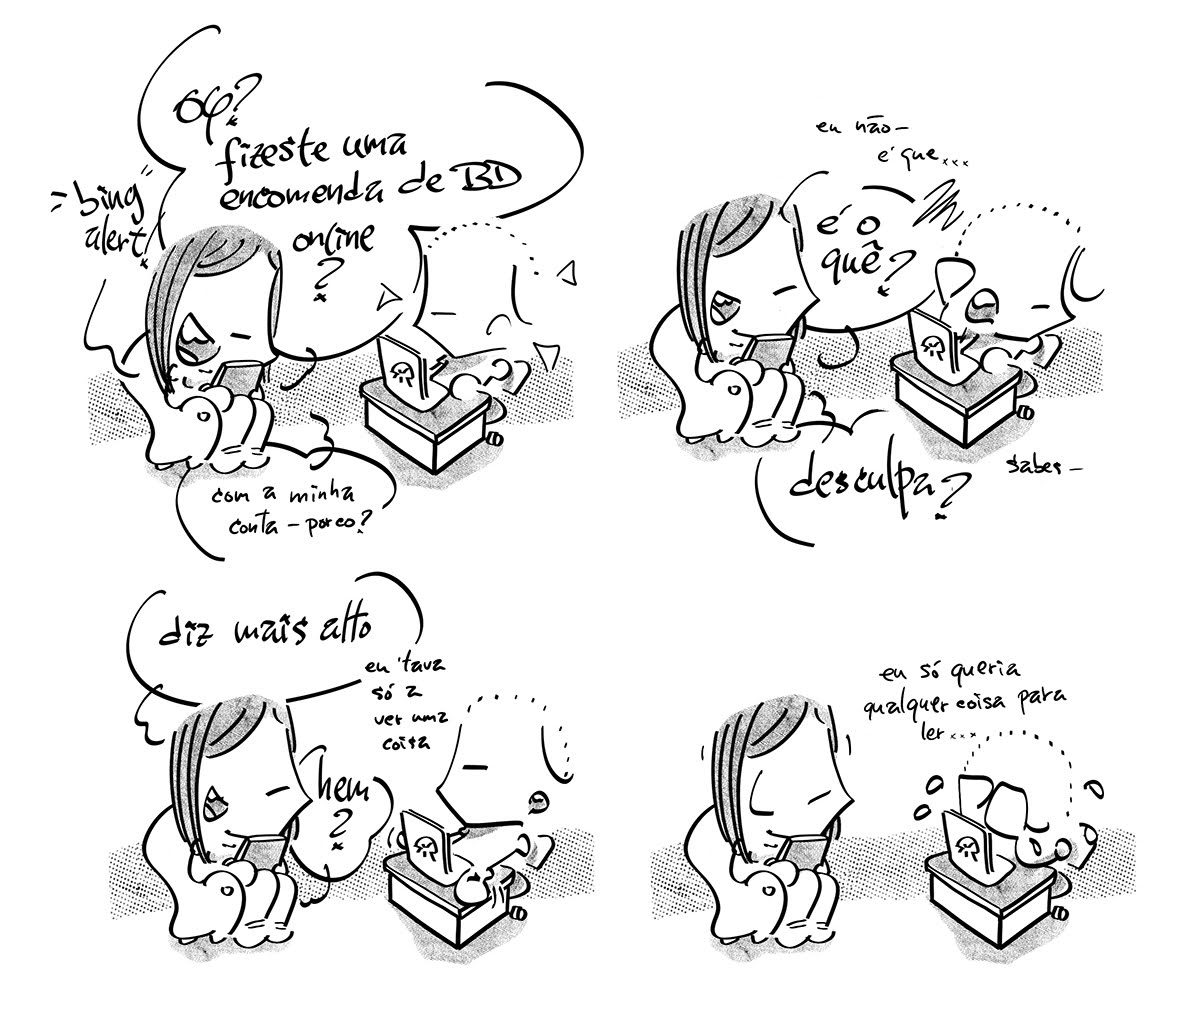 bing
alert!
oy?
fizeste uma
encomenda de BD
online
?
com a minha
conta-porco?
eu não—
é que...
é o
quê?
desculpa?
sabes—
diz mais alto
eu 'tava
só a
ver uma
coisa
hem
?
eu só queria
qualquer coisa para
ler...